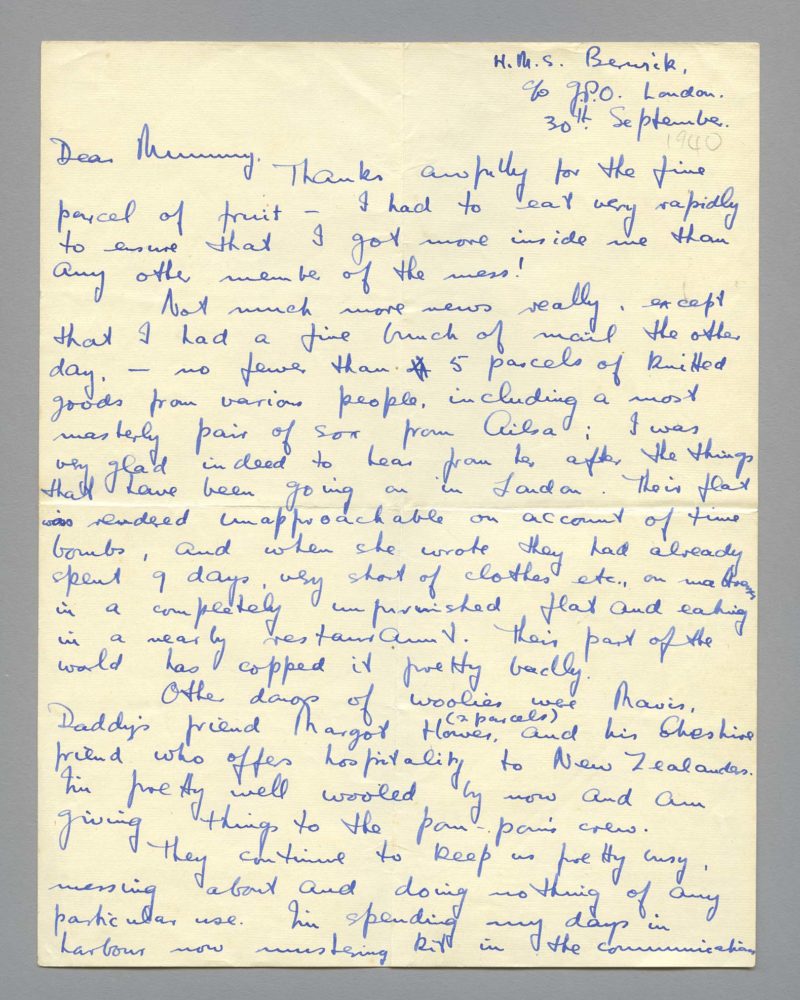 H.M.S. Berwick,
c/o G.P.O. London.
30th September.
1940
Dear Mummy,
Thanks awfully for the fine
parcel of fruit – I had to eat very rapidly
to ensure that I got more inside me than
any other member of the mess!
Not much more news really, except
that I had a fine bunch of mail the other
day, – no fewer than 5 parcels of knitted
goods from various people, including a most
masterly pair of sox from Ailsa; I was
very glad indeed to hear from her after the things
that have been going on in London. Their flat
was rendered unapproachable on account of time
bombs, and when she wrote they had already
spent 9 days, very short of clothes etc., on mattresses
in a completely unfurnished flat and eating
in a nearby restaurant. Their part of the
world has copped it pretty badly.
Other donors of woolies were Mavis,
(2 parcels)
Daddy's friend Margot Howes, and his Cheshire
friend who offers hospitality to New Zealanders.
I'm pretty well wooled by now and am
giving things to the pom-pom's crew.
They continue to keep us pretty busy,
messing about and doing nothing of any
particular use. I'm spending my days in
harbour now mustering kit in the communications